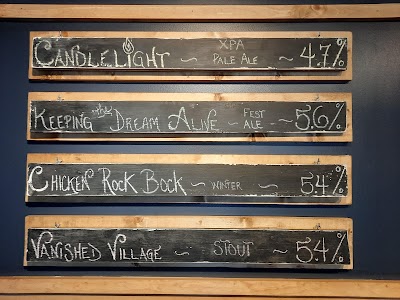 CANDLELIGHT ~ XPA PALE ALE ~ 4.7%
KEEPING the DREAM ALIVE ~ FEST ALE ~ 5.6%
CHICKEN ROCK BOCK ~ WINTER ~ 5.4%
VANISHED VILLAGE ~ STOUT ~ 5.4%